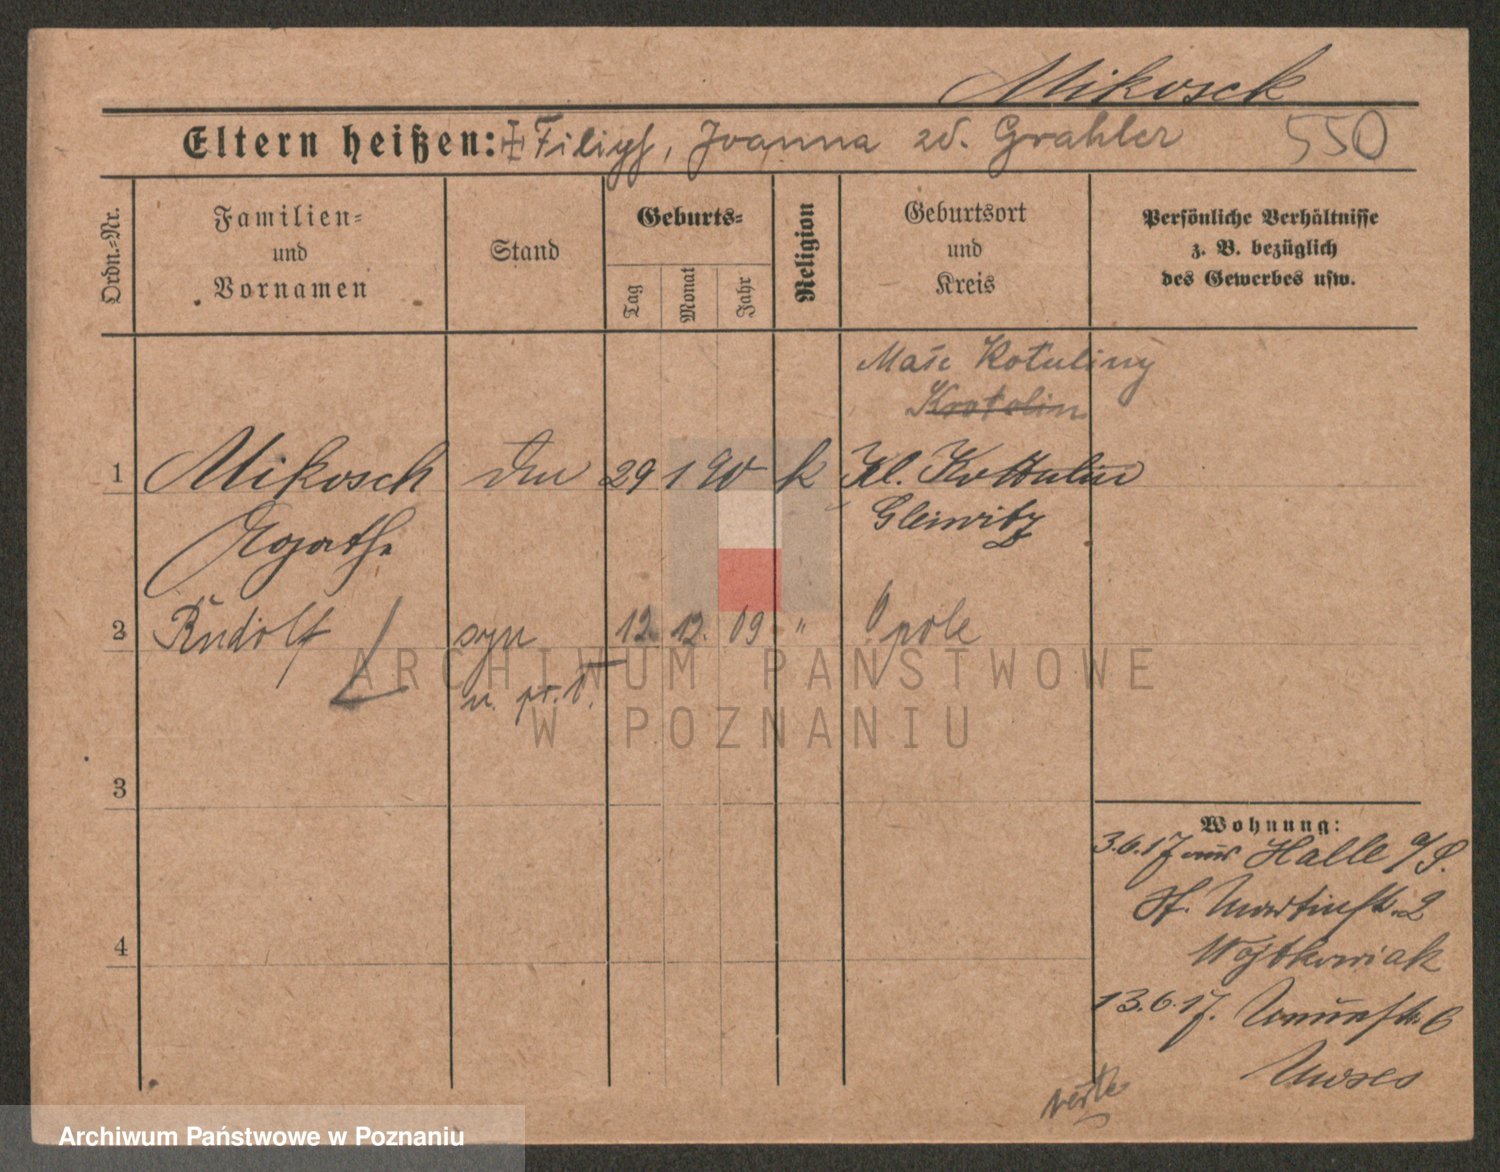 Mikosch
Eltern heißen: + Filip, Joanna zd. Grahler 550
Ordn.-Nr.
Familien- und Vornamen
Stand
Geburts-
Tag
Monat
Jahr
Religion
Geburtsort und Kreis
Persönliche Verhältnisse z. B. bezüglich des Gewerbes usw.
Małe Kotuliny
Krotolin
1 Mikosch 29 1 90 k Kl. Kottulin
Agathe Gleiwitz
2 Rudolf syn 12. 12. 09 " Opole
n. pr.
3
4
Wohnung:
3.6.17 aus Halle a/S.
St. Martinstr. 2
Wojtkowiak
13.6.17. 6
Moses
verte
ARCHIWUM PAŃSTWOWE
W POZNANIU
Archiwum Państwowe w Poznaniu